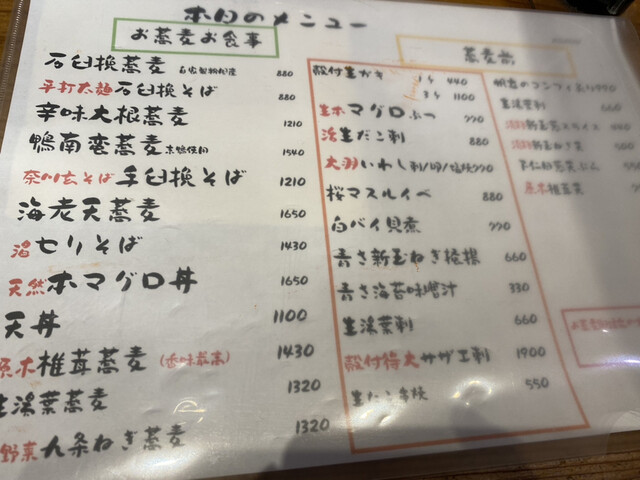 本日のメニュー
お蕎麦お食事
石臼挽蕎麦 880
平打太麺石臼挽そば 880
辛味大根蕎麦 1210
鴨南蛮蕎麦 京鴨使用 1540
奈川在来そば手臼挽そば 1210
海老天蕎麦 1650
セリそば 1430
天然本マグロ丼 1650
天丼 1100
原木椎茸蕎麦(香味最高) 1430
生湯葉蕎麦 1320
野菜九条ねぎ蕎麦 1320
殻付生がき 1ケ 440
3ケ 1100
生本マグロぶつ 990
活生だこ刺 880
大羽いわし刺/卯/塩焼 990
桜マスルイベ 880
白バイ貝煮 990
青さ新玉ねぎ掻揚 660
青さ海苔味噌汁 330
生湯葉刺 660
殻付特大サザエ刺 1900
生だこ串焼 550
生湯葉刺 660
440
500
550
原木椎茸